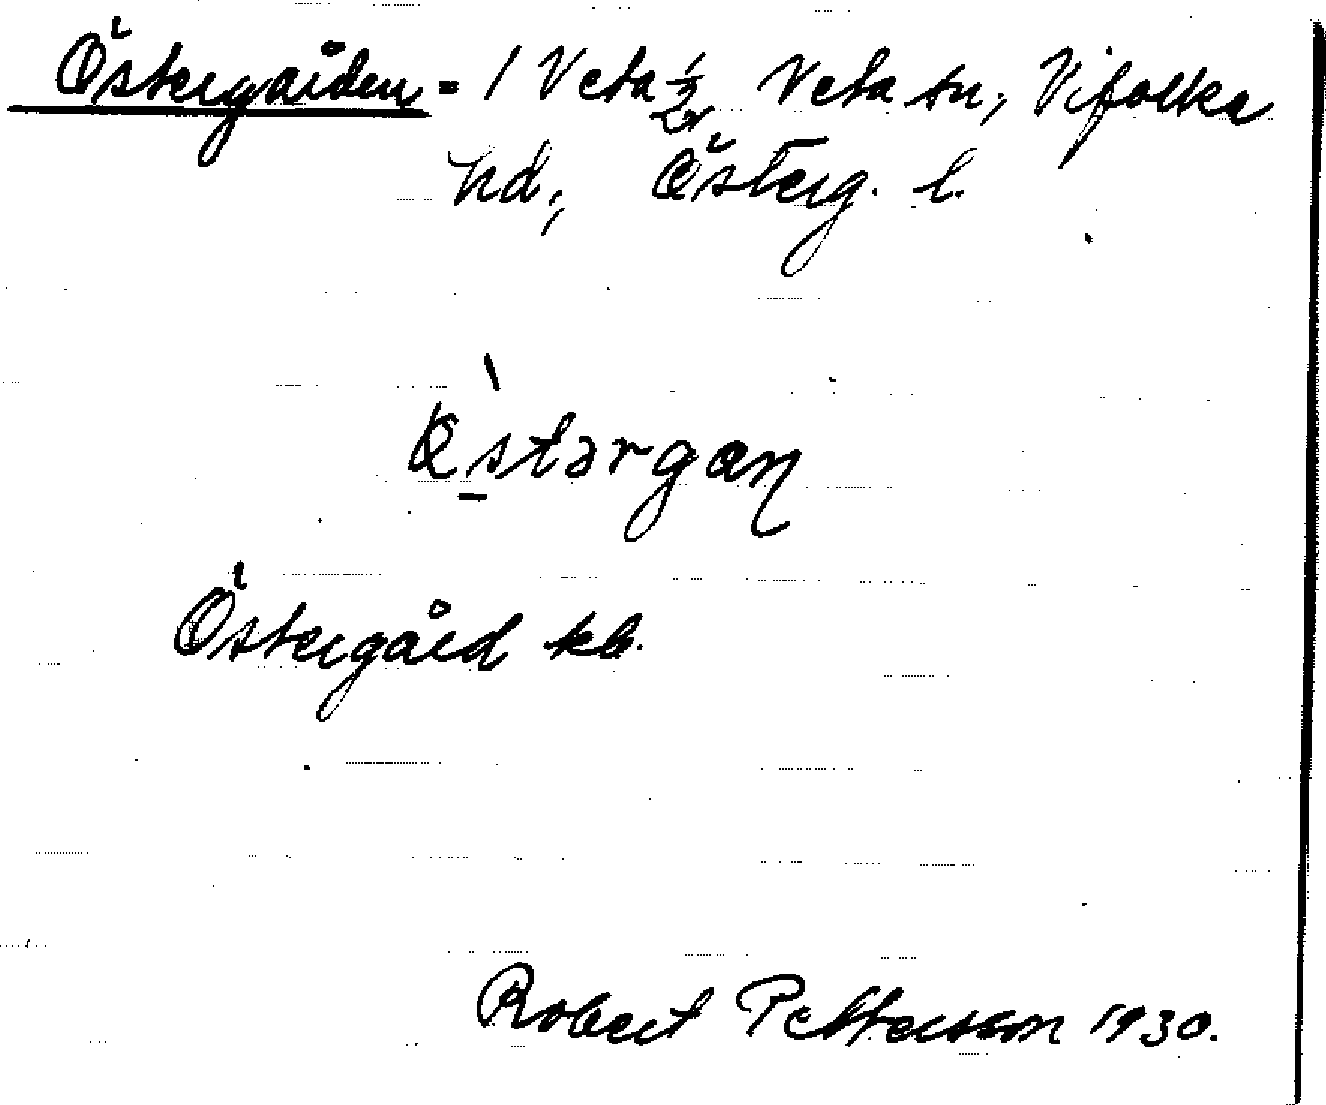 Östergården = 1 Veta ½ Veta sn, Vifolka
hd, Österg. l.
östərgaɳ
Östergård kb.
Robert Pettersson 1930.